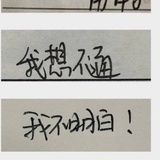 我想不通
我不明白！